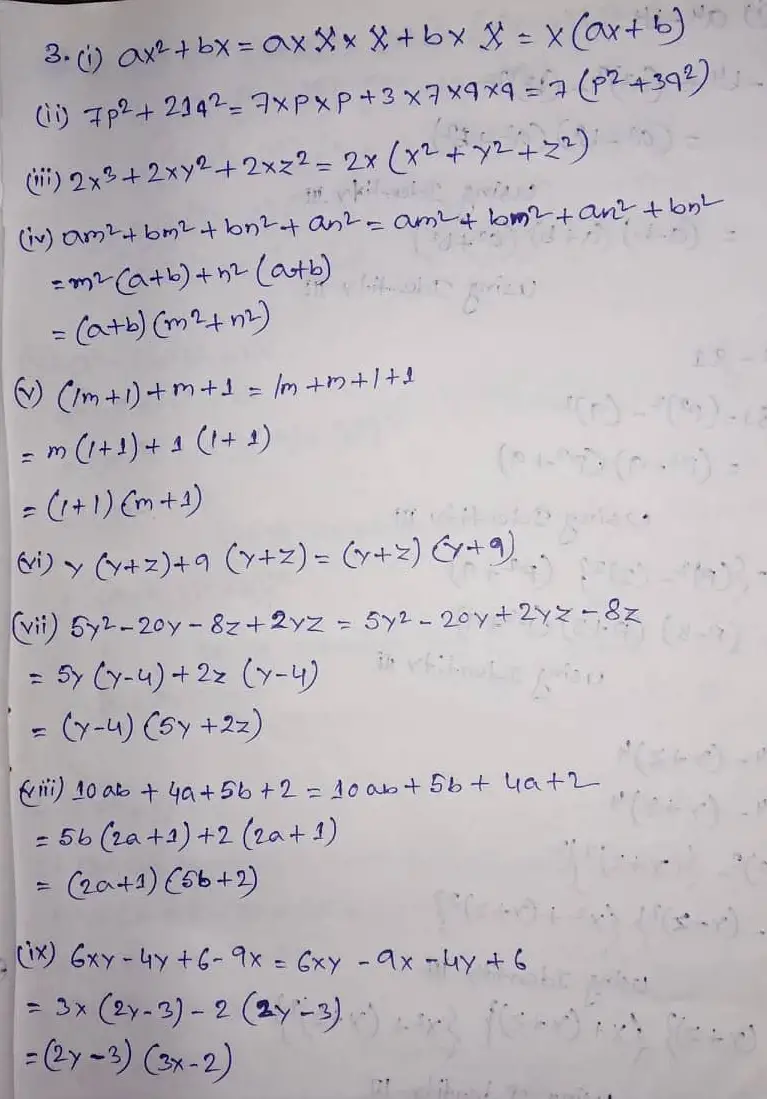 3. (i) ax² + bx = a x X x X + b x X = x (ax + b)
(ii) 7p² + 21q² = 7 x p x p + 3 x 7 x q x q = 7 (p² + 3q²)
(iii) 2x³ + 2xy² + 2xz² = 2x (x² + y² + z²)
(iv) am² + bm² + bn² + an² = am² + bm² + an² + bn²
= m² (a+b) + n² (a+b)
= (a+b) (m² + n²)
(v) (lm + l) + m + 1 = lm + m + l + 1
= m (l + 1) + 1 (l + 1)
= (l + 1) (m + 1)
(vi) y (y+z) + 9 (y+z) = (y+z) (y+9)
(vii) 5y² - 20y - 8z + 2yz = 5y² - 20y + 2yz - 8z
= 5y (y-4) + 2z (y-4)
= (y-4) (5y + 2z)
(viii) 10ab + 4a + 5b + 2 = 10ab + 5b + 4a + 2
= 5b (2a + 1) + 2 (2a + 1)
= (2a+1) (5b+2)
(ix) 6xy - 4y + 6 - 9x = 6xy - 9x - 4y + 6
= 3x (2y-3) - 2 (2y-3)
= (2y-3) (3x-2)